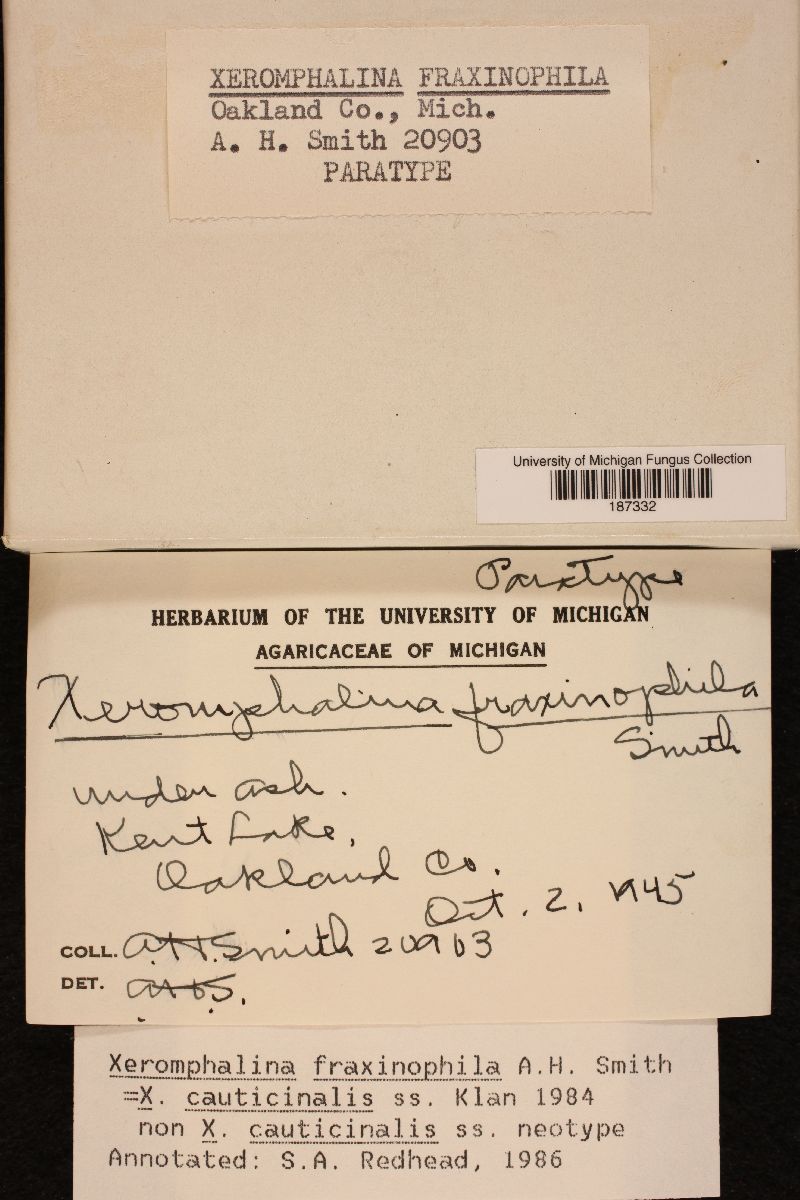 XEROMPHALINA FRAXINOPHILA
Oakland Co., Mich.
A. H. Smith 20903
PARATYPE
University of Michigan Fungus Collection
187332
Paratype
HERBARIUM OF THE UNIVERSITY OF MICHIGAN
AGARICACEAE OF MICHIGAN
Xeromphalina fraxinophila
Smith
under ash.
Kent Lake,
Oakland Co.
Oct. 2, 1945
COLL. A.H. Smith 20903
DET. AHS.
Xeromphalina fraxinophila A.H. Smith
=X. cauticinalis ss. Klan 1984
non X. cauticinalis ss. neotype
Annotated: S.A. Redhead, 1986